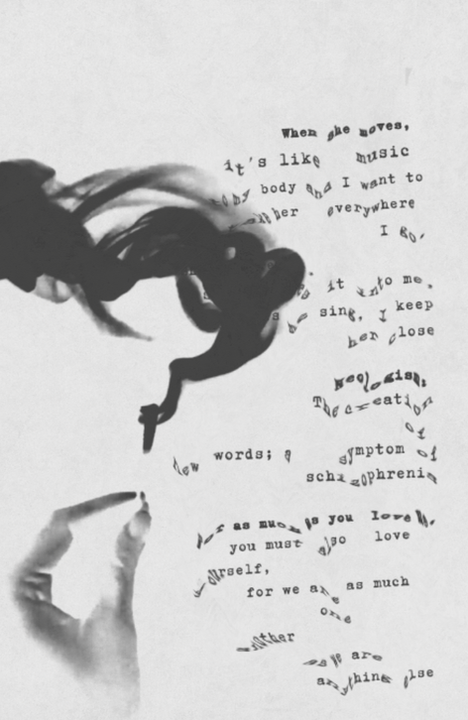 When she moves,
it's like music
body and I want to
her everywhere
I go.
it into me.
sing, I keep
her close
Neologism;
The creation
of
new words; a symptom of
schizophrenia
for as much as you love
you must also love
yourself,
for we are as much
one
another
as we are
anything else